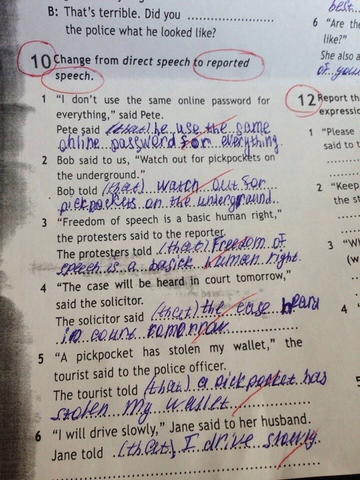 B: That's terrible. Did you ..................
the police what he looked like?
best...
6 "Are th
like?"
She also a
of your
10 Change from direct speech to reported
speech.
12 Report th
expressio
1 "I don't use the same online password for
everything," said Pete.
Pete said (that) he use the same
online password for everything.
1 "Please
said to t
2 Bob said to us, "Watch out for pickpockets on
the underground."
Bob told (that) watch out for
pickpockets on the underground.
2 "Keep
the st
3 "Freedom of speech is a basic human right,"
the protesters said to the reporter.
The protesters told (that) Freedom of
speech is a basick human right.
3 "W
(w
4 "The case will be heard in court tomorrow,"
said the solicitor.
The solicitor said (that) the case heard
in court tomorrow
4 "
5 "A pickpocket has stolen my wallet," the
tourist said to the police officer.
The tourist told (that) a pickpocket has
stolen my wallet
6 "I will drive slowly," Jane said to her husband.
Jane told (that) I drive slowly.